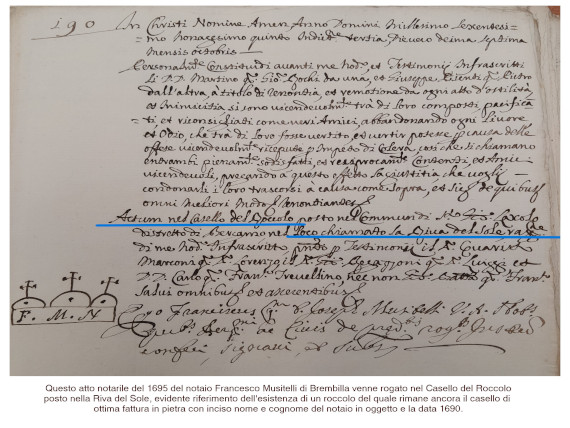 190
In Christi Nomine Amen Anno Domini Millesimo sexentesi=
mo Nonagesimo quinto Indict.e tertia, Die vero decima septima
mensis octobris
Personalm.te Constituidi avanti me Nod.o, et Testimonij Infrascritti
Martino q. Gio: da una, et Giuseppe q. Pietro
dall'altra, à titolo di et remotione da ogni atto d'ostilità
et Inimicitia si sono vicendevolm.te trà di loro composti pacifica
ti, et riconsigliati come veri Amici, abbandonando ogni Livore
et Odio, che trà di loro fosse vertito, et vertir potesse p causa delle
offese vicendevolm.te ricepute p Impeto di Colera, così che si chiamano
sodisfatti, et reciprocam.te et Amici
vicendevoli, pregando à questo effetto la giustitia che vogli
condonarli i loro trascorsi à causa come sopra, et
omni meliori Modo
Actum nel Casello del Rocolo posto nel Commun di
distretto di Bergamo nel Loco chiamato la Riva del sole
di me Nod.o Infrascritto Testimonij
Marconi q. Lorenzo
D. Carlo q. Fran.
salvi omnibus
F. M. N
Ego Franciscus q. D. Joseph Musitelli
Questo atto notarile del 1695 del notaio Francesco Musitelli di Brembilla venne rogato nel Casello del Roccolo
posto nella Riva del Sole, evidente riferimento dell'esistenza di un roccolo del quale rimane ancora il casello di
ottima fattura in pietra con inciso nome e cognome del notaio in oggetto e la data 1690.